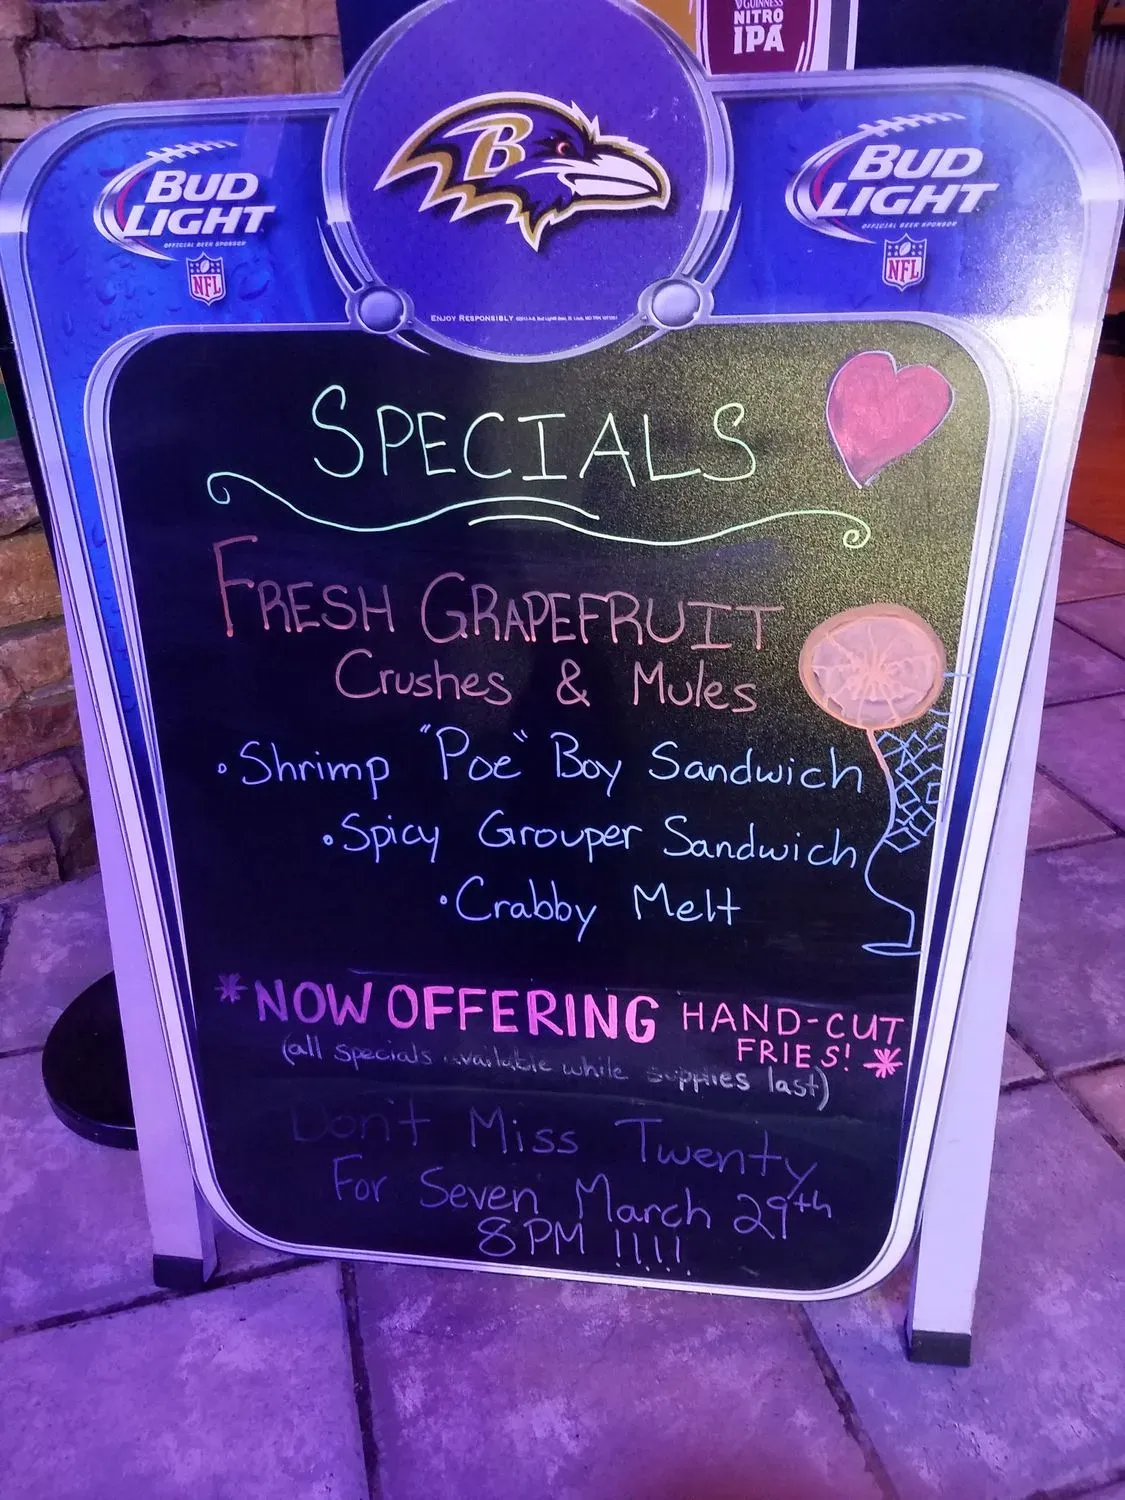 GUINNESS
NITRO
IPA
B
BUD
LIGHT
OFFICIAL BEER SPONSOR
NFL
BUD
LIGHT
OFFICIAL BEER SPONSOR
NFL
ENJOY RESPONSIBLY
SPECIALS
FRESH GRAPEFRUIT
Crushes & Mules
• Shrimp "Poe" Boy Sandwich
• Spicy Grouper Sandwich
• Crabby Melt
*NOW OFFERING HAND-CUT
FRIES! *
(all specials available while supplies last)
Don't Miss Twenty
For Seven March 29th
8PM !!!!!